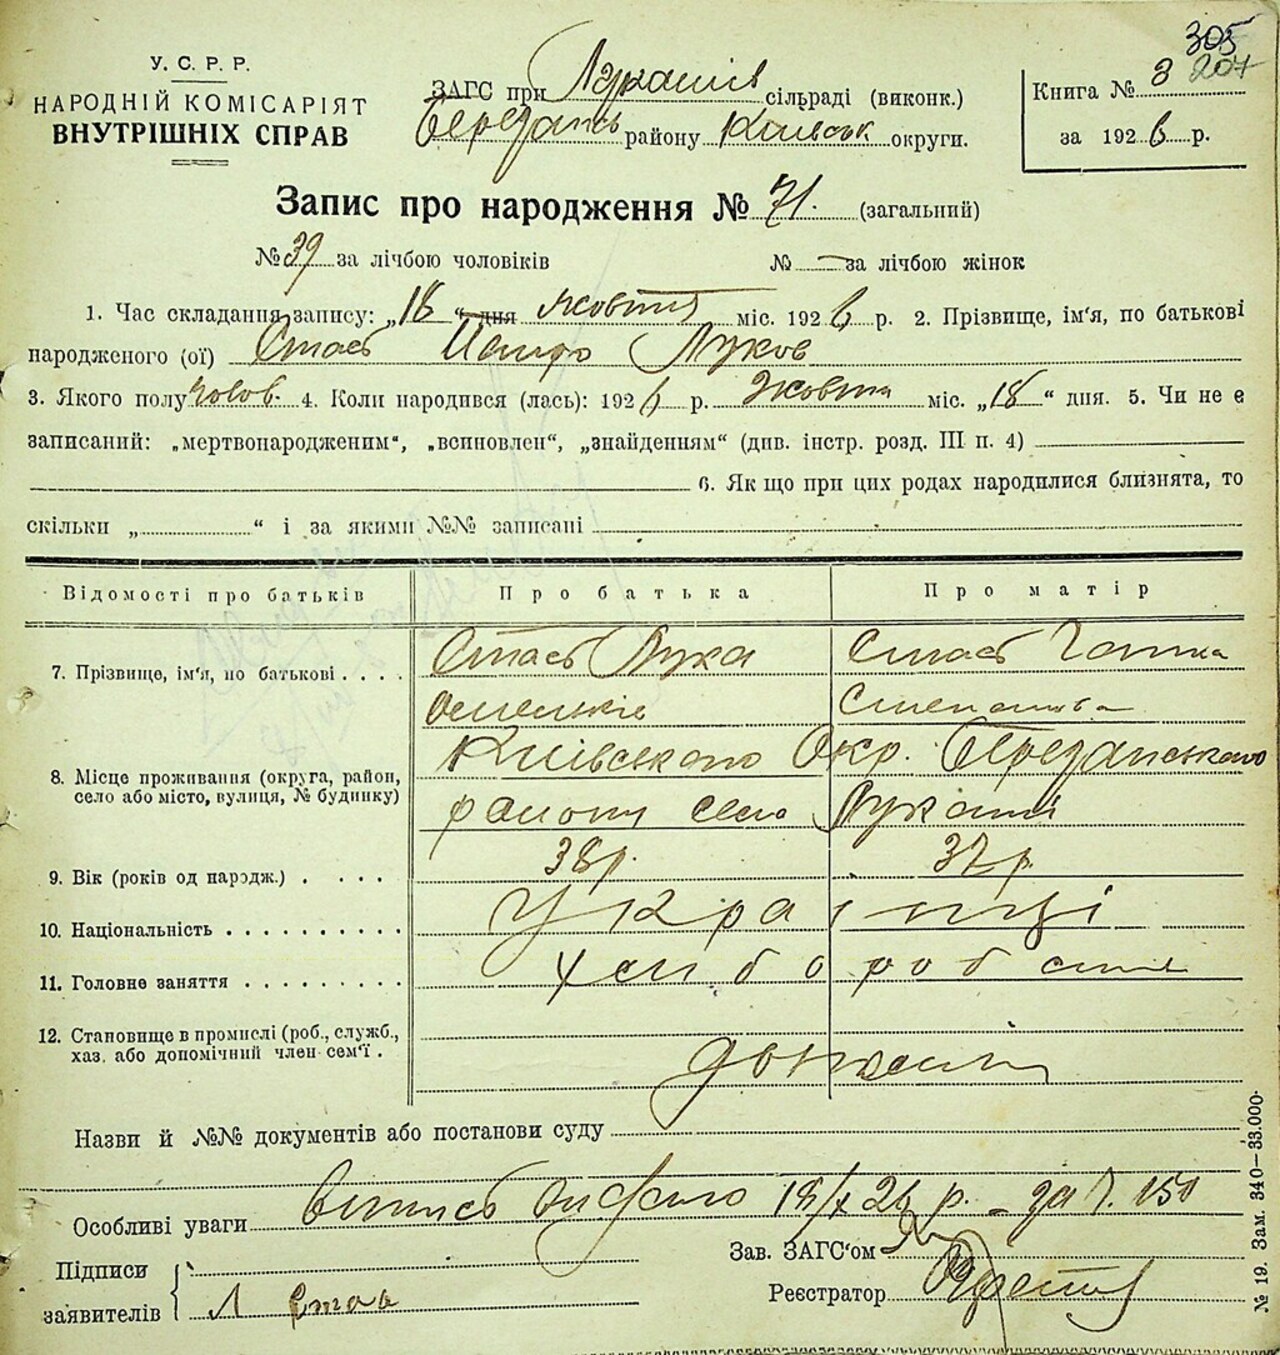 305
207
У. С. Р. Р.
НАРОДНІЙ КОМІСАРІЯТ
ВНУТРІШНІХ СПРАВ
ЗАГС при Лукашів сільраді (виконк.)
Березансь району Київськ округи.
Книга № 3
за 1926 р.
Запис про народження № 71. (загальний)
№ 39 за лічбою чоловіків № — за лічбою жінок
1. Час складання запису: „18" дня жовтня міс. 1926 р. 2. Прізвище, ім'я, по батькові
народженого (ої) Стась Петро Луков
3. Якого полу чолов. 4. Коли народився (лась): 1926 р. Жовтня міс. „18" дня. 5. Чи не є
записаний: „мертвонародженим", „всиновлен", „знайденням" (див. інстр. розд. III п. 4)
6. Як що при цих родах народилися близнята, то
скільки „ " і за якими №№ записані
Відомості про батьків Про батька Про матір
7. Прізвище, ім'я, по батькові . . . . Стась Лука Стась
Степанова
8. Місце проживання (округа, район, село або місто, вулиця, № будинку) Київського Окр. Березанського
району село Лукаші
9. Вік (років од нарєдж.) . . . . 38р. 37 р.
10. Національність . . . . . . . . . . Українці
11. Головне заняття . . . . . . . . . Хлібороб
12. Становище в промислі (роб., служб., хаз. або допомічний член сем'ї .
Назви й №№ документів або постанови суду
Особливі уваги Випись видано 18/X 26 р. – за №. 150
Підписи
заявителів Л Стась
Зав. ЗАГС'ом
Реєстратор
№ 19. Зам. 340—33.000.